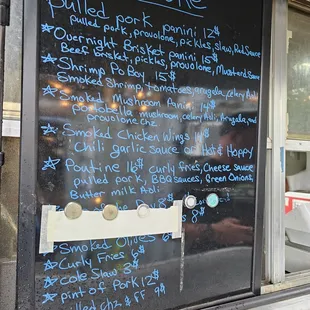 pulled pork panini 12$
pulled pork, provolone, pickles, slaw, Red Sauce
Overnight Brisket panini 15$
Beef brisket, pickles, provolone, Mustard Sauce
Shrimp Po Boy 15$
Smoked Shrimp, tomatoes, arugula, celery Aioli
Smoked Mushroom Panini 14$
portobella mushroom, celery Aioli, Arugula, and
provolone Chz
Smoked Chicken Wings 14$
Chili garlic sauce or Hot & Happy
Poutine 16$ Curly fries, Cheese sauce
pulled pork, BBQ sauces, Green Onions,
Butter milk Aoli
8$
Smoked Olives 6$
Curly Fries 6$
Cole Slaw 3$
pint of Pork 12$
chz & FF 9$